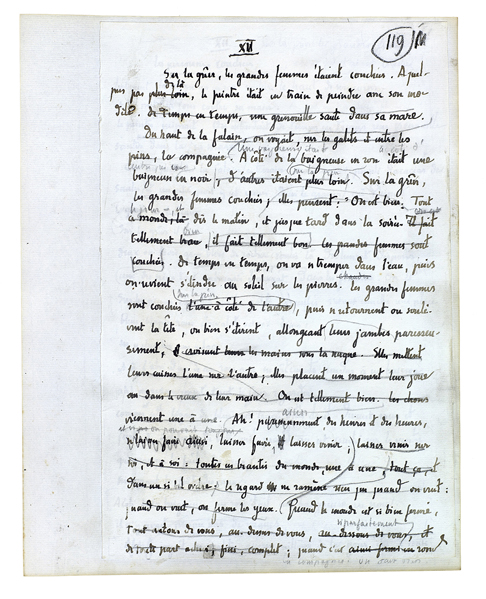 XII
119
Sur la grève, les grandes femmes étaient couchées. A quel-
ques pas plus loin, le peintre était en train de peindre avec son mo-
dèle. de temps en temps, une grenouille saute dans sa mare.
Du haut de la falaise, on voyait, sur les galets et entre les
pins, la compagnie. A côté de la baigneuse en rose était une
baigneuse en noir, d'autres étaient plus loin. Sur la grève,
les grandes femmes couchées; elles pensent: "On est bien. Tout
le monde, là dès le matin, et jusque tard dans la soirée. Il fait
tellement beau, il fait tellement bon. les grandes femmes sont
couchées. de temps en temps, on va se tremper dans l'eau, puis
on revient s'étendre au soleil sur les pierres. les grandes femmes
sont couchées l'une à côté de l'autre, puis se retournent ou soulè-
vent la tête, ou bien s'étirent, allongeant leurs jambes paresseu-
sement, croisent les mains sous la nuque. Elles mettent
leurs l'une sur l'autre; elles placent un moment leur joue
ou dans le creux de leur main. On est tellement bien. les choses
viennent une à une. Ah! des heures et des heures,
faire ainsi, laisser faire, laisser venir, laisser venir sur
soi, et à soi: toutes les beautés du monde, une à une, tout ça, et
dans un si bel ordre: le regard ramène quand on veut;
quand on veut, on ferme les yeux. Quand le monde est si bien fermé,
tout autour de vous, au-dessus de vous, au-dessous de vous, et
de toute part, fini, complet; quand c'est en rond